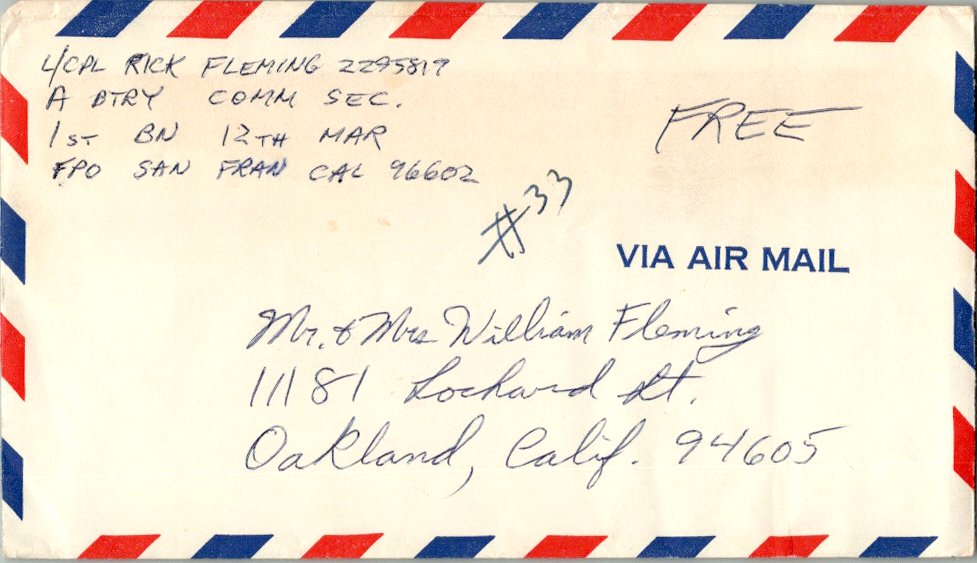 L/CPL RICK FLEMING 2295819
A BTRY COMM SEC.
1ST BN 12TH MAR
FPO SAN FRAN CAL 96602
FREE
#33
VIA AIR MAIL
Mr. & Mrs William Fleming
11181 Lochard St.
Oakland, Calif. 94605